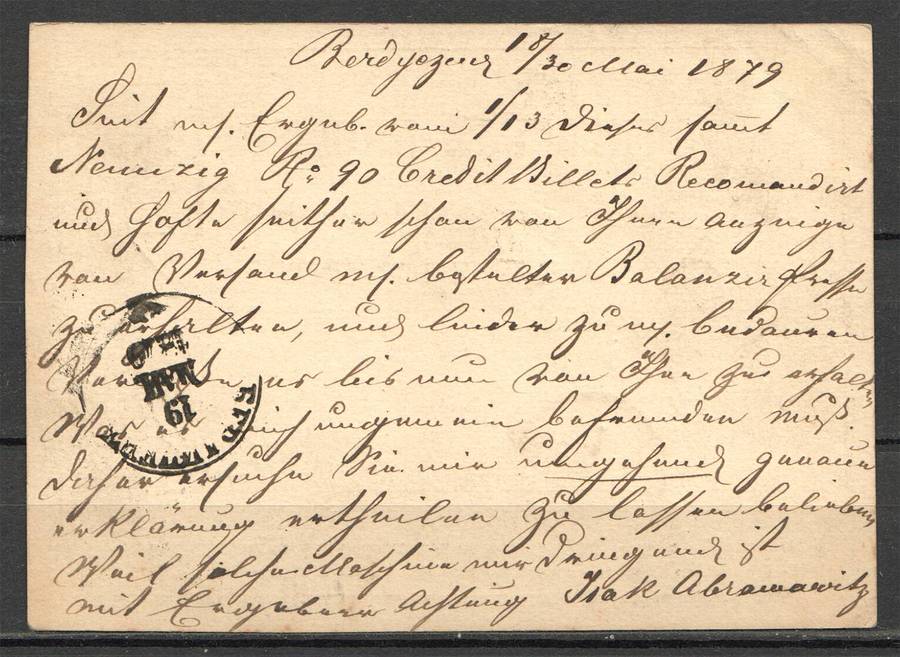 Berdyczew 18/30 Mai 1879
Seit m/. Ergeb. vom 1/13 dieses samt
Ro: 90 Credit Billets Recomandirt
und hofte seither schon von Ihnen anzeige
von Versand m/. bestelter Balanzir presse
zu erhalten, und leider zu m/. bedauern
es bis nun von Ihnen zu erhalten
Was mich ungemein befremden muß.
daher ersuche Sie mir umgehend genaue
erklärung ertheilen zu lassen belieben
Weil solche Maschine mir dringend ist
mit Ergebener Achtung Isak Abramowitz
19
МАЯ